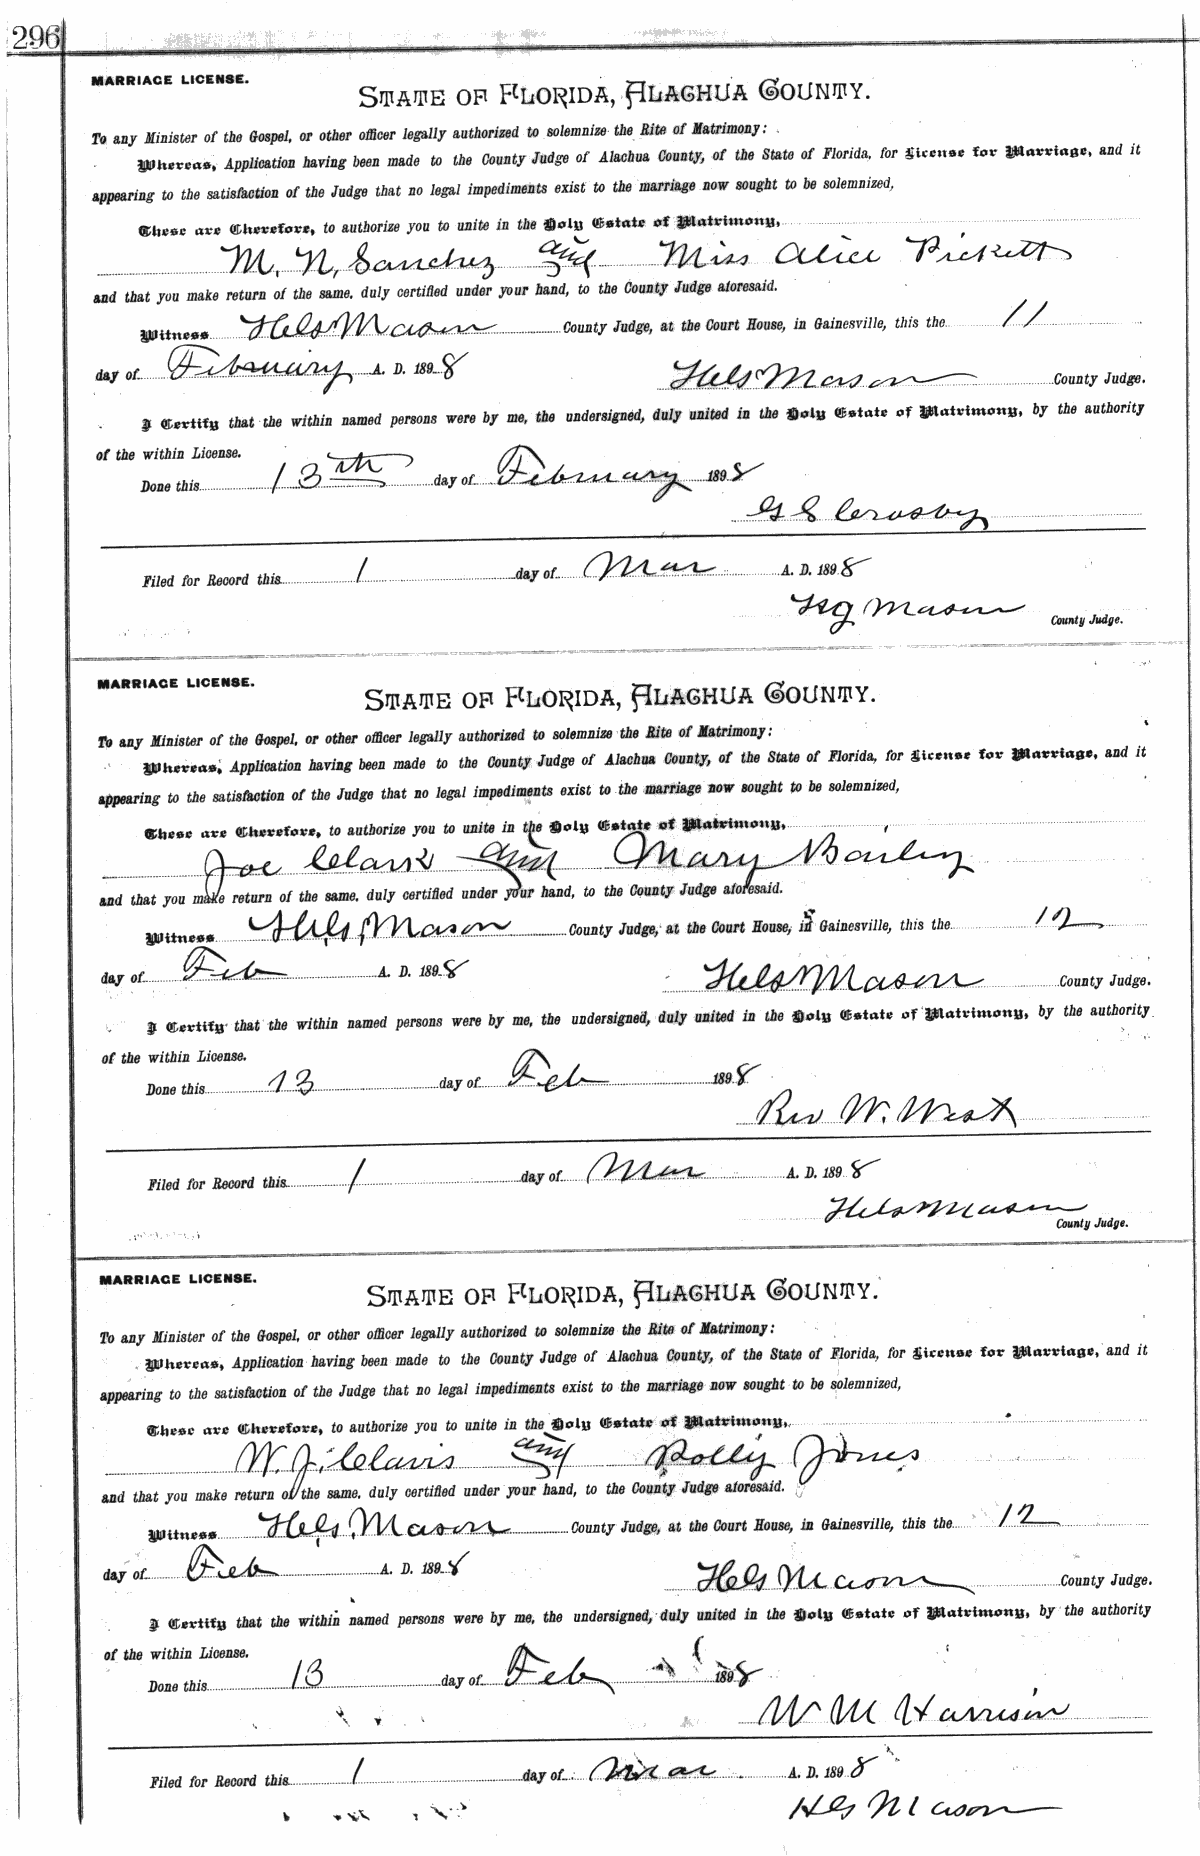 296
MARRIAGE LICENSE.
STATE OF FLORIDA, ALACHUA COUNTY.
To any Minister of the Gospel, or other officer legally authorized to solemnize the Rite of Matrimony:
Whereas, Application having been made to the County Judge of Alachua County, of the State of Florida, for License for Marriage, and it
appearing to the satisfaction of the Judge that no legal impediments exist to the marriage now sought to be solemnized,
These are Therefore, to authorize you to unite in the Holy Estate of Matrimony,
M. N. Sanchez and Miss Alice Pickett
and that you make return of the same, duly certified under your hand, to the County Judge aforesaid.
Witness Mason County Judge, at the Court House, in Gainesville, this the 11
day of February A. D. 1898 Mason County Judge.
I Certify that the within named persons were by me, the undersigned, duly united in the Holy Estate of Matrimony, by the authority
of the within License.
Done this 13th day of February 1898
G S Crosby
Filed for Record this 1 day of Mar A. D. 1898
Mason County Judge.
MARRIAGE LICENSE.
STATE OF FLORIDA, ALACHUA COUNTY.
To any Minister of the Gospel, or other officer legally authorized to solemnize the Rite of Matrimony:
Whereas, Application having been made to the County Judge of Alachua County, of the State of Florida, for License for Marriage, and it
appearing to the satisfaction of the Judge that no legal impediments exist to the marriage now sought to be solemnized,
These are Therefore, to authorize you to unite in the Holy Estate of Matrimony,
Joe Clark and Mary Bailey
and that you make return of the same, duly certified under your hand, to the County Judge aforesaid.
Witness Mason County Judge, at the Court House, in Gainesville, this the 12
day of Feb A. D. 1898 Mason County Judge.
I Certify that the within named persons were by me, the undersigned, duly united in the Holy Estate of Matrimony, by the authority
of the within License.
Done this 13 day of Feb 1898
Rev W. West
Filed for Record this 1 day of Mar A. D. 1898
Mason County Judge.
MARRIAGE LICENSE.
STATE OF FLORIDA, ALACHUA COUNTY.
To any Minister of the Gospel, or other officer legally authorized to solemnize the Rite of Matrimony:
Whereas, Application having been made to the County Judge of Alachua County, of the State of Florida, for License for Marriage, and it
appearing to the satisfaction of the Judge that no legal impediments exist to the marriage now sought to be solemnized,
These are Therefore, to authorize you to unite in the Holy Estate of Matrimony,
W. J. Clavis and Polly Jones
and that you make return of the same, duly certified under your hand, to the County Judge aforesaid.
Witness Mason County Judge, at the Court House, in Gainesville, this the 12
day of Feb A. D. 1898 Mason County Judge.
I Certify that the within named persons were by me, the undersigned, duly united in the Holy Estate of Matrimony, by the authority
of the within License.
Done this 13 day of Feb 1898
W M Harrison
Filed for Record this 1 day of Mar A. D. 1898
Mason